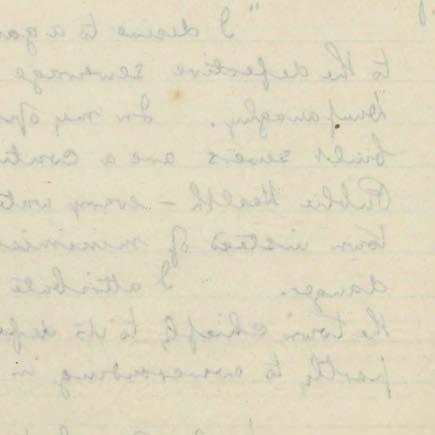 " I desire to aga
to the defective sewerage
Dunfanaghy. In my op
built sewers are a const
Public Health –
town instead of minimis
danger. I attribute
the town chiefly to its defe
partly to overcrowding in